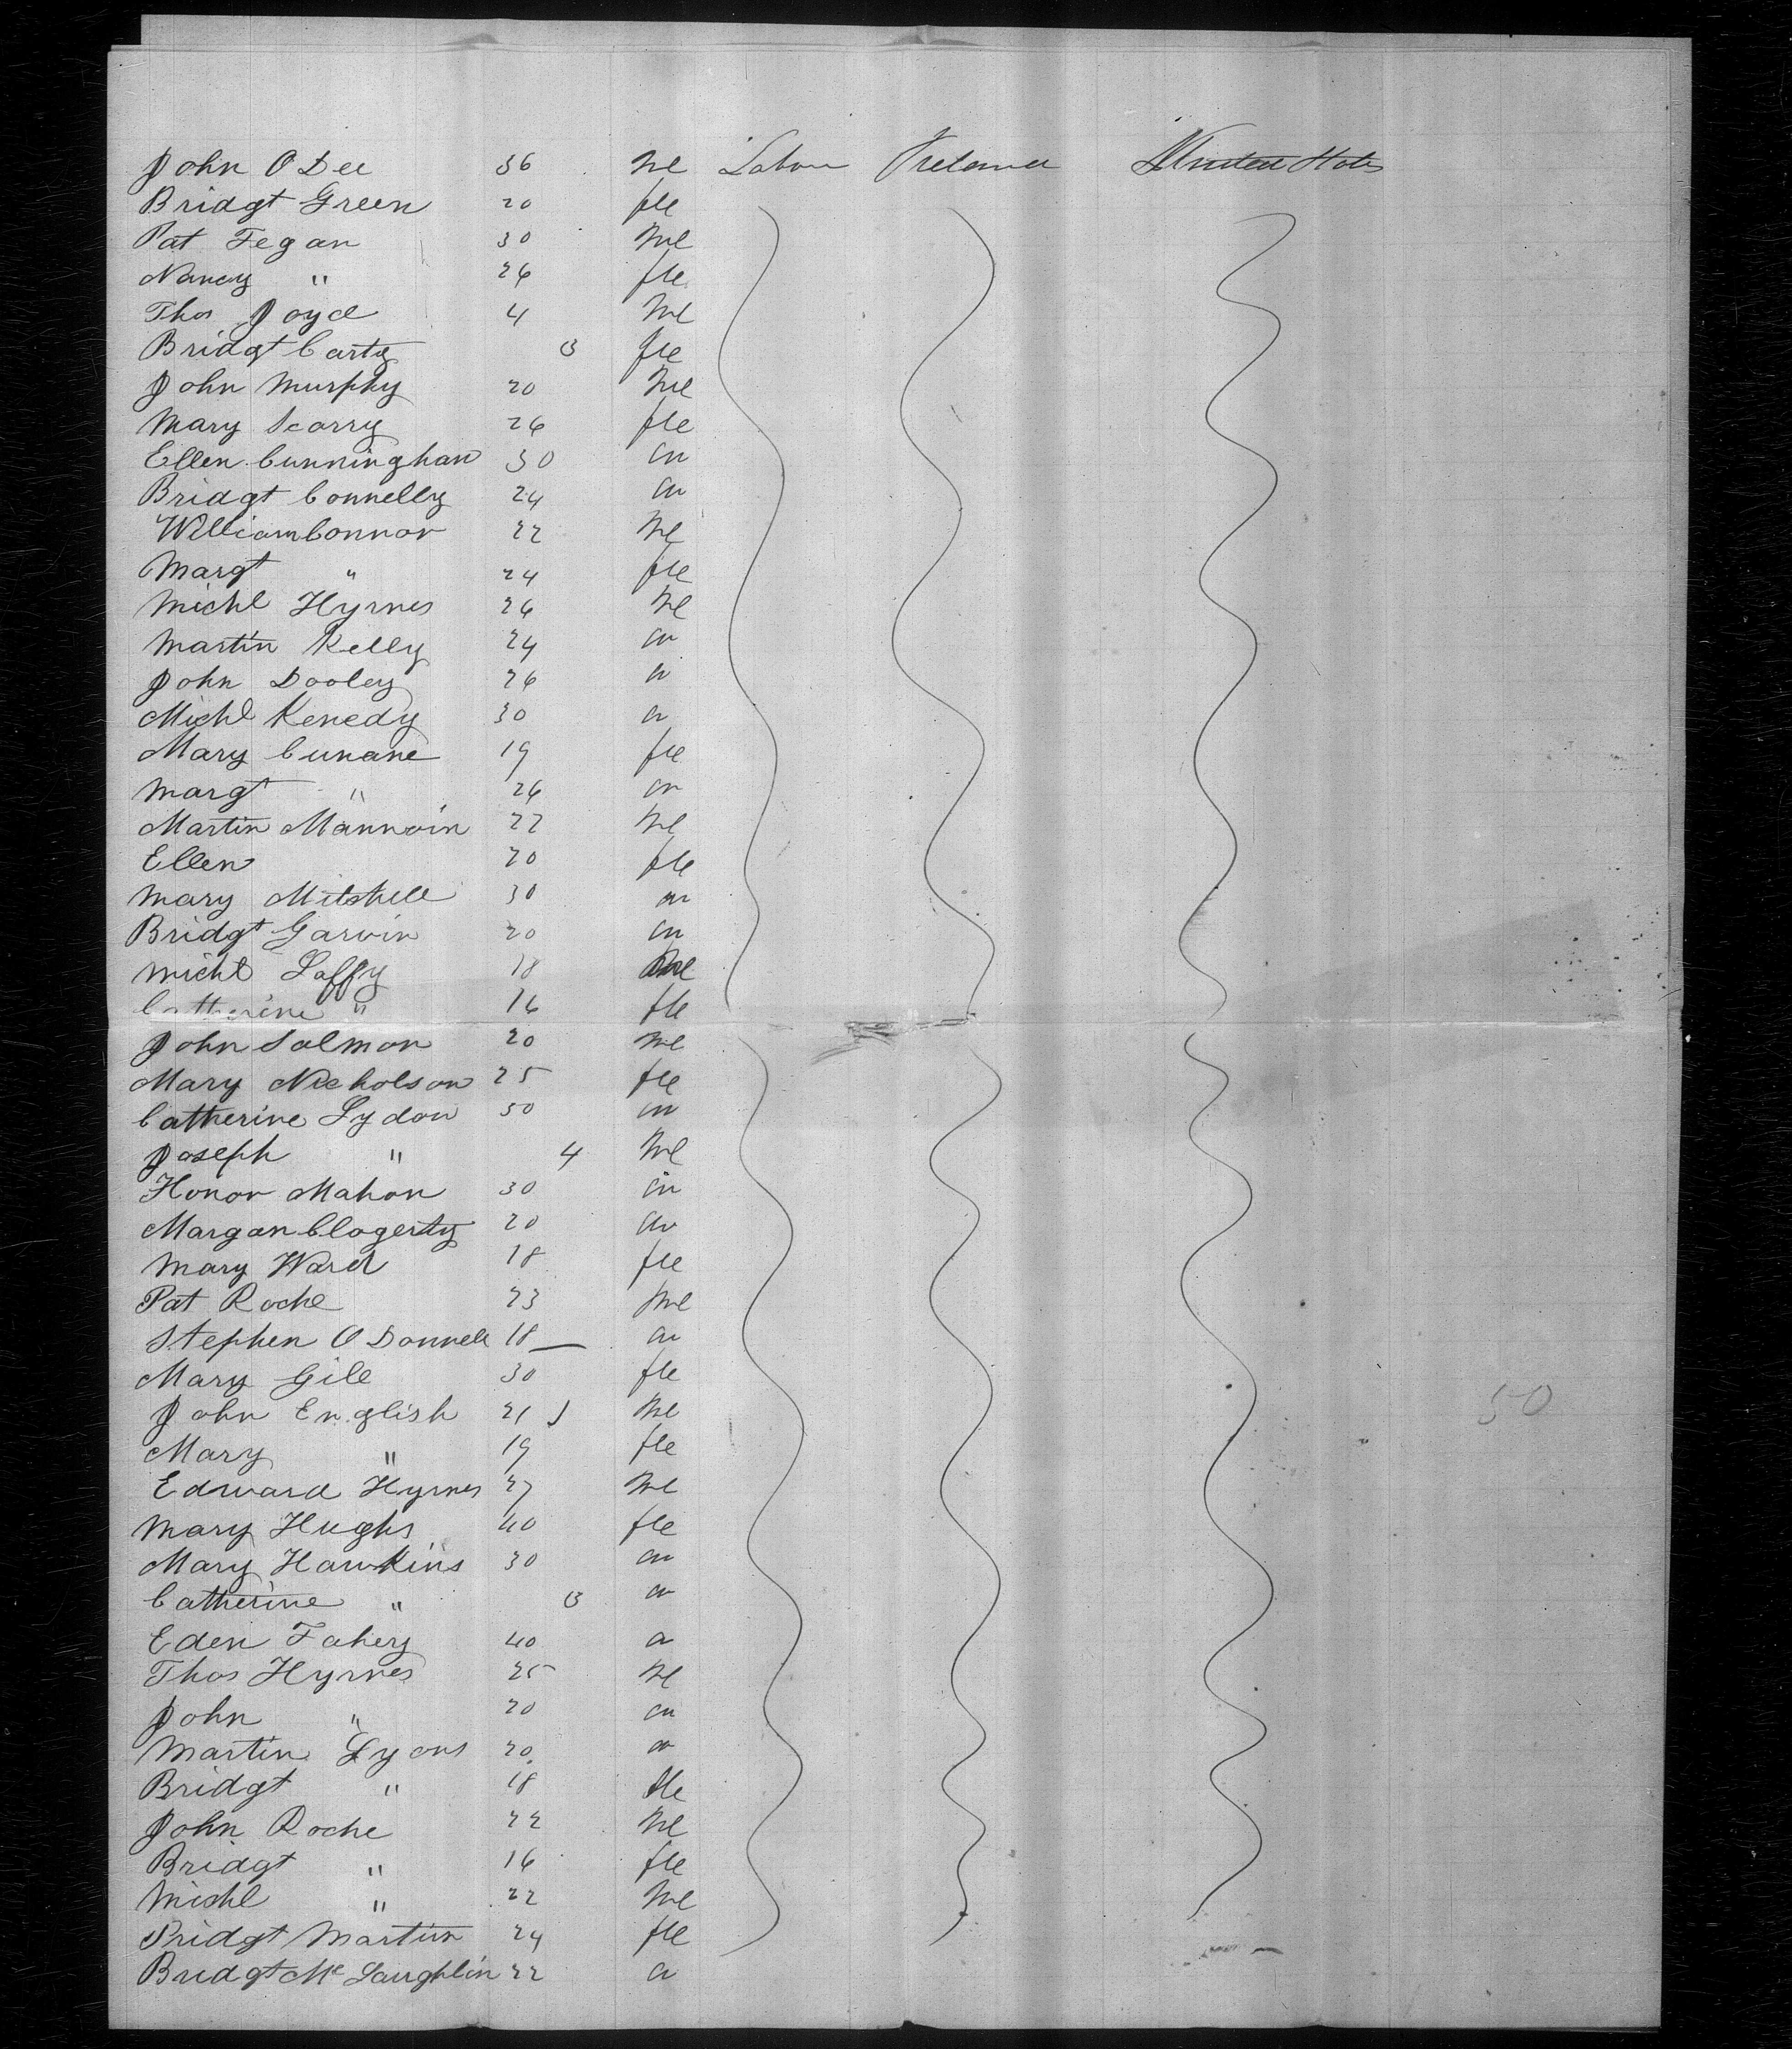 John O Dee 36 Me Labour Ireland United States
Bridgt Green 20 fle
Pat Fegan 30 Me
Nancy " 26 fle
Thos Joyce 4 Me
Bridgt Carty 3 fle
John Murphy 20 Me
Mary Scarry 26 fle
Ellen Cunningham 30 "
Bridgt Connelly 24 "
William Connor 22 Me
Margt " 24 fle
Michl Hyrnes 26 Me
Martin Kelly 24 "
John Dooley 26 "
Michl Kenedy 30 "
Mary Cunane 19 fle
Margt " 26 "
Martin Mannoin 22 Me
Ellen 20 fle
Mary Mitshell 30 "
Bridgt Garvin 20 "
Michl Laffy 18 Me
Catherine " 16 fle
John Salmon 20 Me
Mary Nicholson 25 fle
Catherine Lydon 50 "
Joseph " 4 Me
Honor Mahon 30 "
Margan Clogerty 20 "
Mary Ward 18 fle
Pat Roche 23 Me
Stephen O Donnell 18 — "
Mary Gill 30 fle
John English 21 Me
Mary " 19 fle 50
Edward Hyrnes 27 Me
Mary Hughs 40 fle
Mary Hawkins 30 "
Catherine " 3 "
Eden Fahey 40 "
Thos Hyrnes 25 Me
John " 20 "
Martin Lyons 20 "
Bridgt " 18 fle
John Roche 22 Me
Bridgt " 16 fle
Michl " 22 Me
Bridgt Martin 24 fle
Bridgt Mc Laughlin 22 "